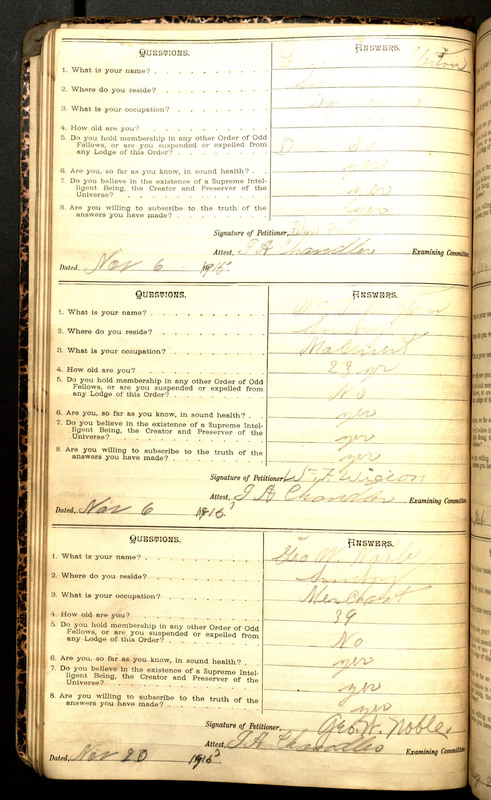 QUESTIONS. ANSWERS.
1. What is your name?
2. Where do you reside?
3. What is your occupation?
4. How old are you?
5. Do you hold membership in any other Order of Odd
Fellows, or are you suspended or expelled from
any Lodge of this Order?
6. Are you, so far as you know, in sound health? yes
7. Do you believe in the existence of a Supreme Intel-
ligent Being, the Creator and Preserver of the
Universe? yes
8. Are you willing to subscribe to the truth of the
answers you have made? yes
Signature of Petitioner,
Attest, J A Chandler Examining Committee.
Dated, Nov 6 1915
QUESTIONS. ANSWERS.
1. What is your name?
2. Where do you reside?
3. What is your occupation? Machinest
4. How old are you? 23 yr
5. Do you hold membership in any other Order of Odd
Fellows, or are you suspended or expelled from
any Lodge of this Order? No
6. Are you, so far as you know, in sound health? yes
7. Do you believe in the existence of a Supreme Intel-
ligent Being, the Creator and Preserver of the
Universe? yes
8. Are you willing to subscribe to the truth of the
answers you have made? yes
Signature of Petitioner,
Attest, J A Chandler Examining Committee.
Dated, Nov 6 1915
QUESTIONS. ANSWERS.
1. What is your name? Geo W. Noble
2. Where do you reside?
3. What is your occupation? Merchant
4. How old are you? 39
5. Do you hold membership in any other Order of Odd
Fellows, or are you suspended or expelled from
any Lodge of this Order? No
6. Are you, so far as you know, in sound health? yes
7. Do you believe in the existence of a Supreme Intel-
ligent Being, the Creator and Preserver of the
Universe? yes
8. Are you willing to subscribe to the truth of the
answers you have made? yes
Signature of Petitioner, Geo. W. Noble.
Attest, J A Chandler Examining Committee.
Dated, Nov 20 1915